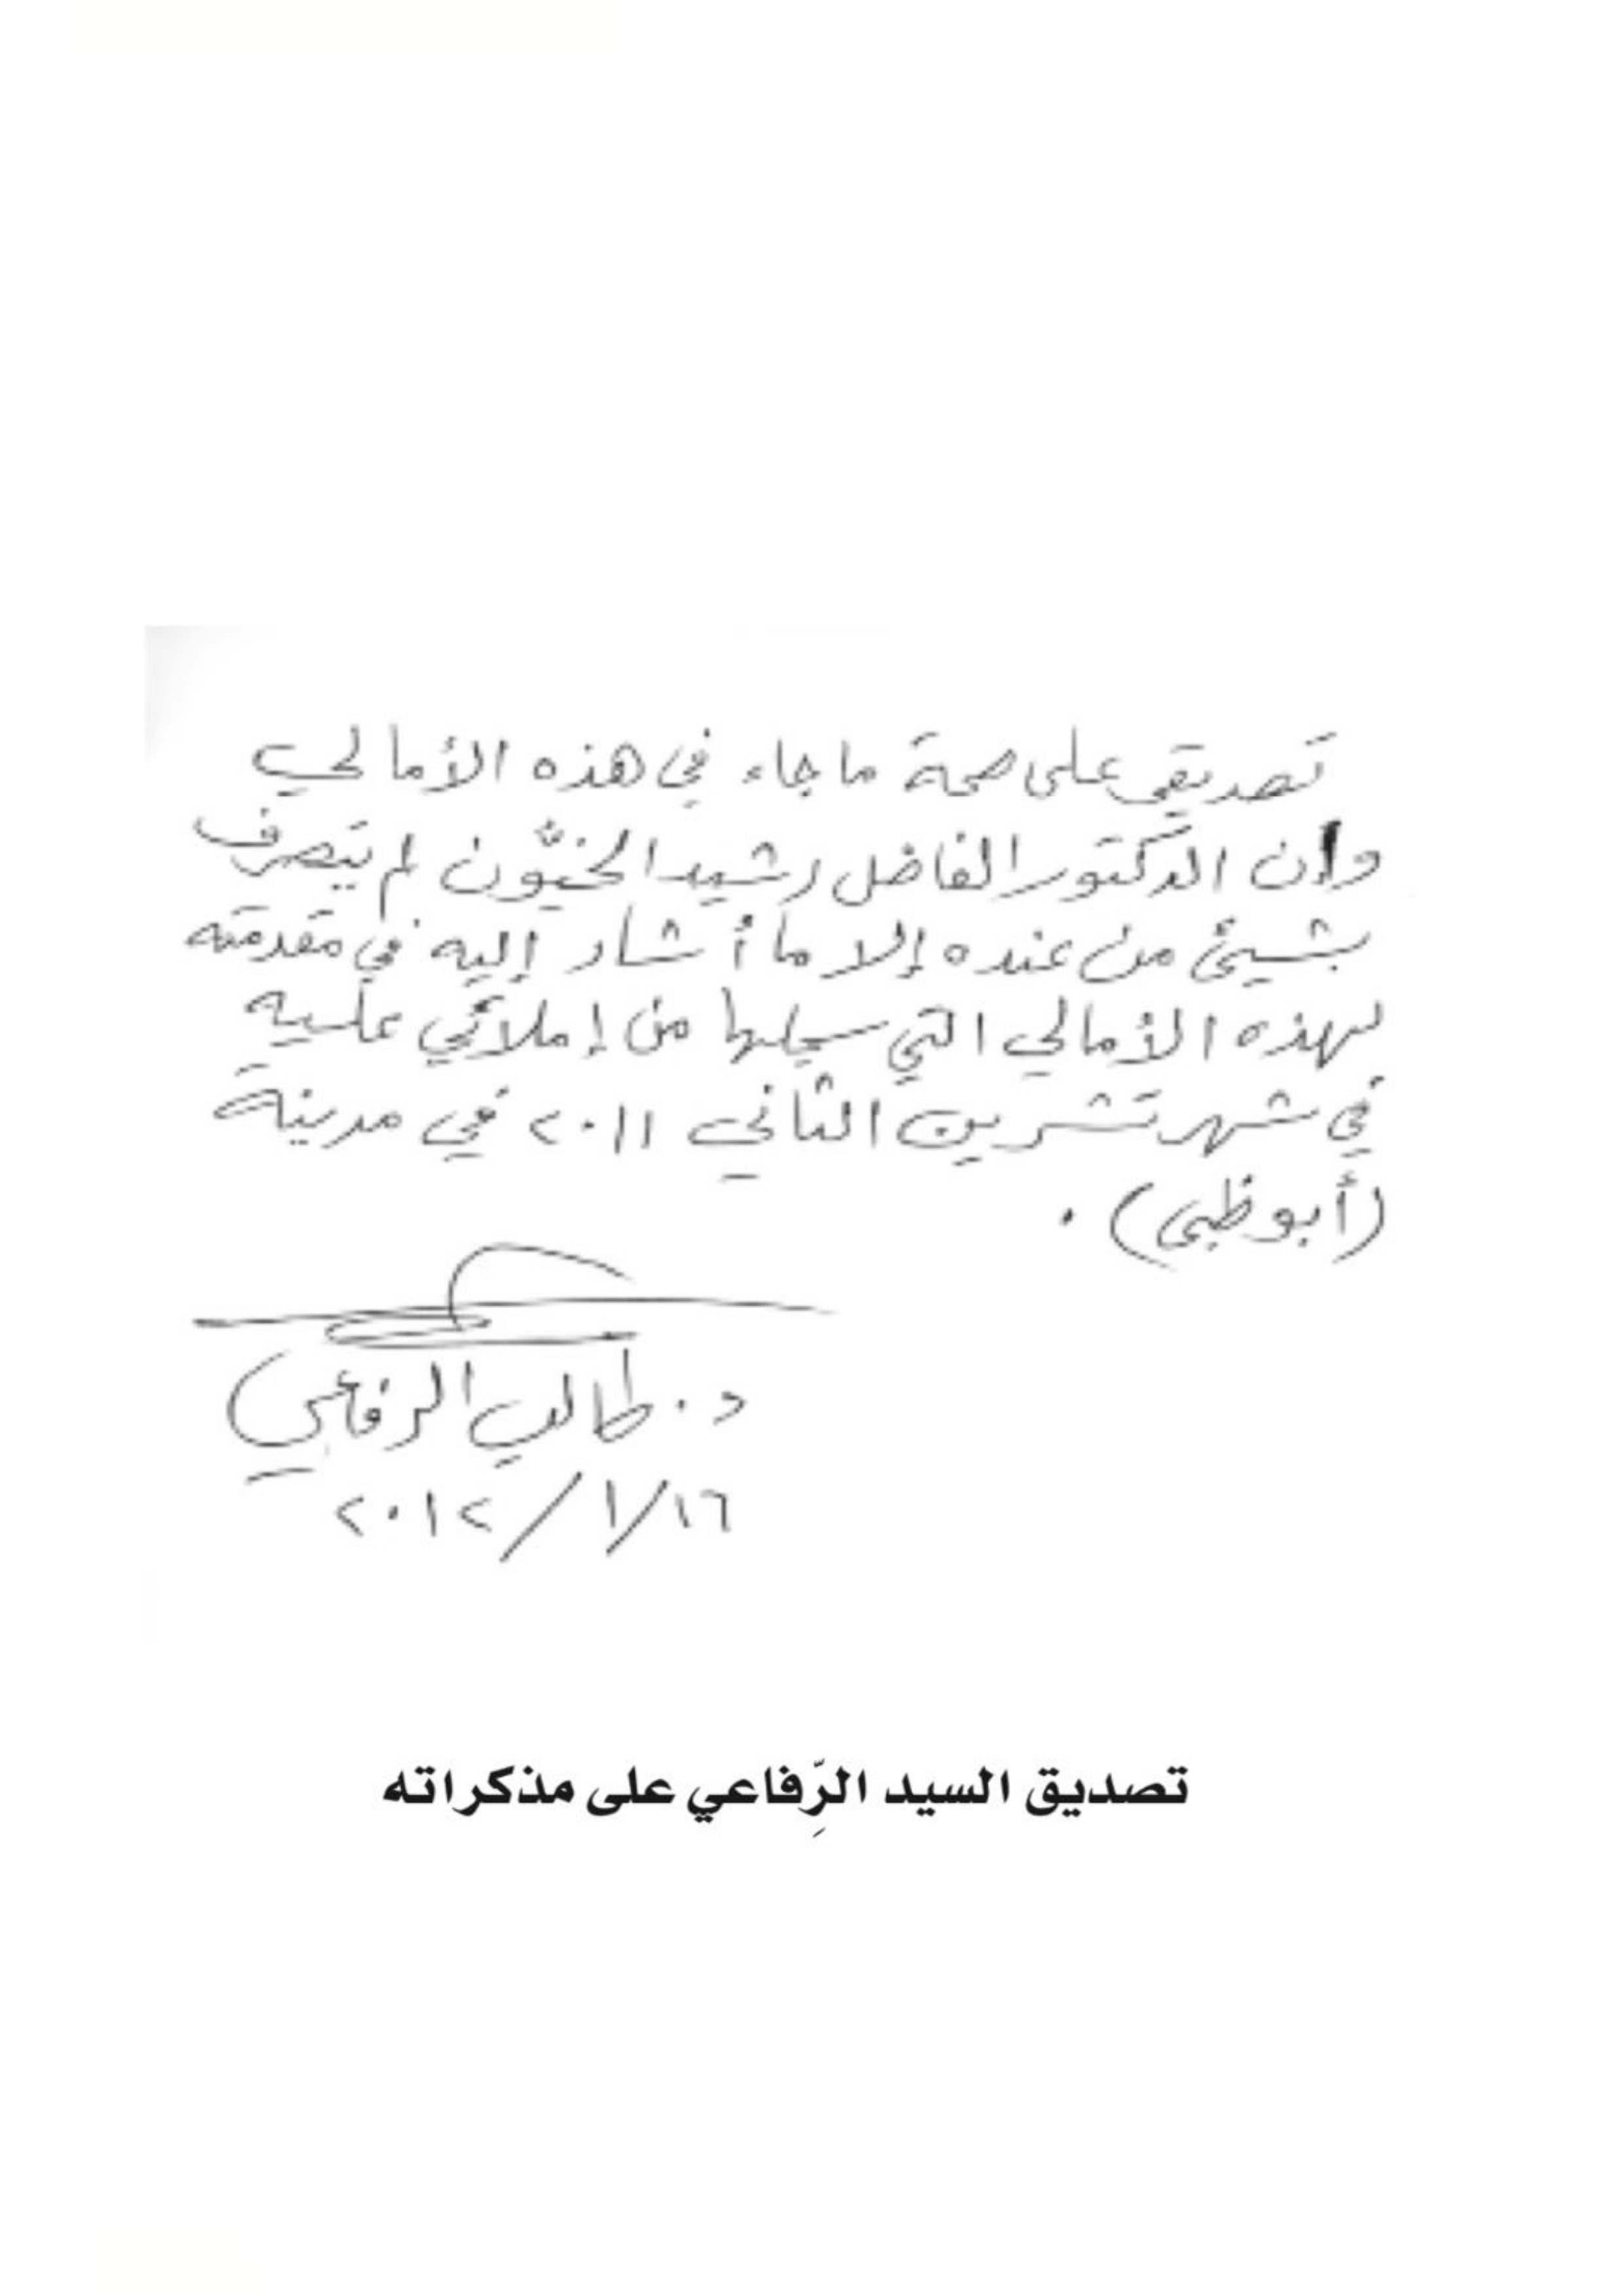 تصديقي على صحة ما جاء في هذه الأمالي
وإن الدكتور الفاضل رشيد الخيّون لم يتصرف
بشيئ من عنده إلا ما أشار إليه في مقدمته
لهذه الأمالي التي سجلها من إملائي عليه
في شهر تشرين الثاني ٢٠١١ في مدينة
(أبوظبي) .
د. طالب الرفاعي
١٦/١/٢٠١٢
تصديق السيد الرِّفاعي على مذكراته